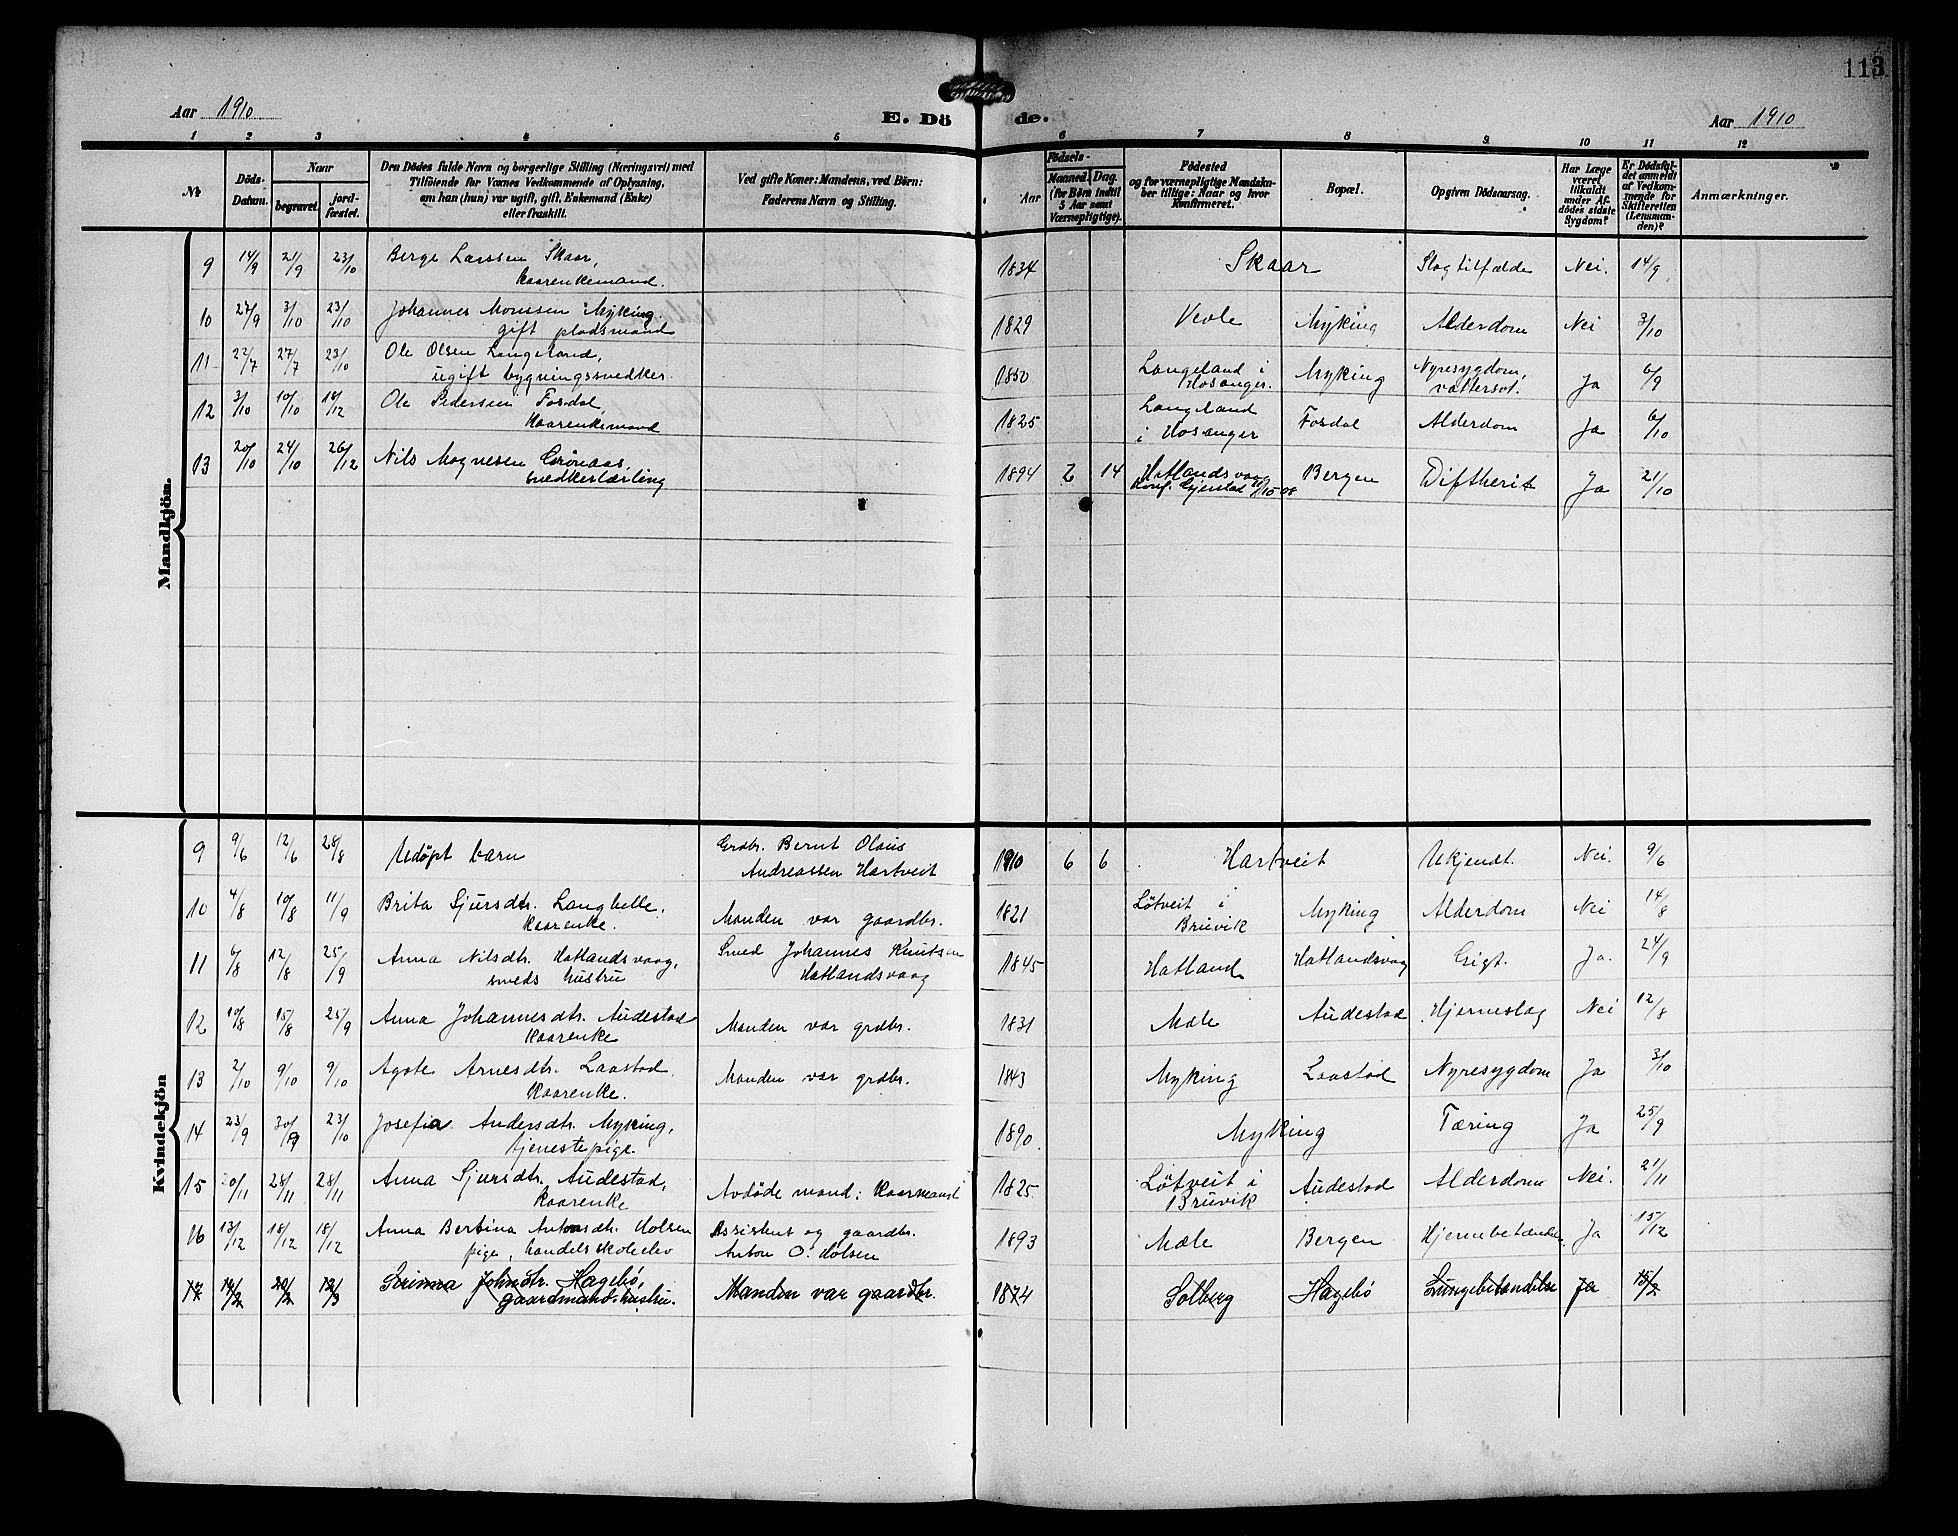 113
Aar 1910
E. Döde.
Aar 1910
1 2 3 4 5 6 7 8 9 10 11 12
No
Döds-Datum.
Naar
begravet.
jord-fæstet.
Den Dödes fulde Navn og borgerlige Stilling (Næringsvei) med
Tilföiende for Voxnes Vedkommende af Oplysning,
om han (hun) var ugift, gift, Enkemand (Enke)
eller fraskilt.
Ved gifte Koner: Mandens, ved Börn:
Faderens Navn og Stilling.
Födsels-
Aar
Maaned. Dag.
(for Börn indtil
5 Aar samt
Værnepligtige).
Födested
og for værnepligtige Mandska-
ber tillige: Naar og hvor
konfirmeret.
Bopæl.
Opgiven Dödsaarsag.
Har Læge
været
tilkaldt
under Af-
dödes sidste
Sygdom?
Er Dödsfal-
det anmeldt
af Vedkom-
mende for
Skifteretten
(Lensman-
den)?
Anmærkninger.
Mandkjön.
9 14/9 21/9 23/10 Berge Larssen Skaar, 1834 Skaar Slagtilfælde Nei. 14/9
kaarenkemand.
10 27/9 3/10 23/10 Johannes Monssen Myking. 1829 Veole Myking Alderdom Nei 3/10
gift pladsmand
11 22/7 27/7 23/10 Ole Olsen Langeland, 1850 Langeland i Hosanger. Myking Nyresygdom, vattersot. Ja 6/9
ugift bygningssnedker.
12 3/10 10/10 18/12 Ole Pedersen Fosdal, 1825 Langeland i Hosanger Fosdal Alderdom Ja 6/10
Kaarenkemand
13 20/10 24/10 26/12 Nils Magnesen Grönaas, 1894 2 14 Hatlandsvaag Konf. Gjerstad 08 Bergen Diftherit Ja 21/10
snedkerlærling
Kvindekjön
9 9/6 12/6 28/8 Udöpt barn Grdbr. Bernt Olaus Andreassen Hartveit 1910 6 6 Hartveit Ukjendt. Nei. 9/6
10 4/8 10/8 11/9 Brita Sjursdtr. Langhelle, Manden var gaardbr. 1821 Lötveit i Bruvik Myking Alderdom Nei 14/8
Kaarenke.
11 6/8 12/8 25/9 Anna Nilsdtr. Hatlandsvaag, Smed Johannes Knutsen Hatlandsvaag 1845 Hatland Hatlandsvaag Gigt. Ja. 24/9
smeds hustru
12 10/8 15/8 25/9 Anna Johannesdtr. Audestad Manden var grdbr. 1831 Mæle Audestad Hjerneslag Nei 12/8
Kaarenke
13 2/10 9/10 9/10 Agate Arnesdtr. Laastad. Manden var grdbr. 1843 Myking Laastad Nyresygdom Ja 3/10
Kaarenke.
14 23/9 30/9 23/10 Josefia Andersdtr. Myking, 1890. Myking Tæring Ja 25/9
tjenestepige.
15 20/11 28/11 28/11 Anna Sjursdtr. Audestad, Avdöde mand: Kaarmand 1825 Lötveit i Bruvik Audestad Alderdom Nei. 21/11
Kaarenke
16 13/12 18/12 18/12 Anna Bertina Antonsdtr. Holsen Assistent og gaardbr. Anton O. Holsen 1893 Mæle Bergen Ja 15/12
pige, handelsskoleelev
17 Johnsdtr. Hagebö, Manden var gaardbr. 1874 Solberg Hagebö Lungebetændelse Ja 15/2
gaardmandshustru.